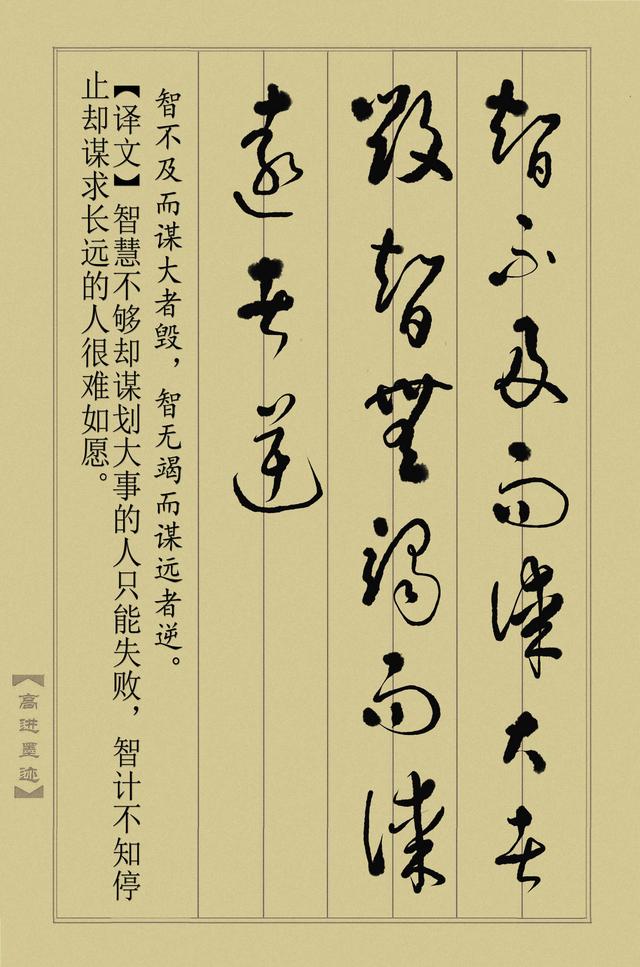 智不及而谋大者
毁智無竭而谋
遠者逆
智不及而谋大者毁，智无竭而谋远者逆。
【译文】智慧不够却谋划大事的人只能失败，智计不知停
止却谋求长远的人很难如愿。
【高进墨迹】